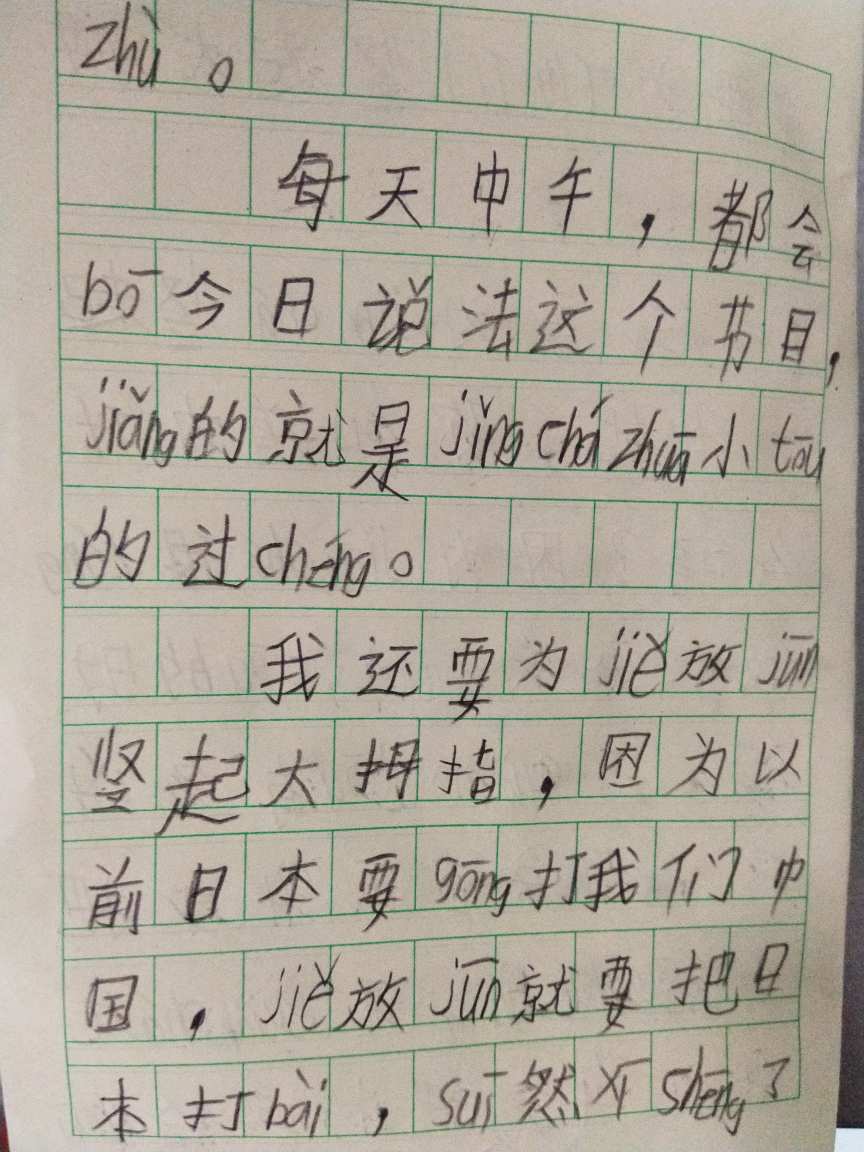 zhù。
每天中午，都会
bō今日说法这个节目，
jiǎng的就是jǐng chá zhuā小tōu
的过chēng。
我还要为jiě放jūn
竖起大拇指，因为以
前日本要gōng打我们中
国，jiě放jūn就要把日
本打bài，suī然xī shēng了